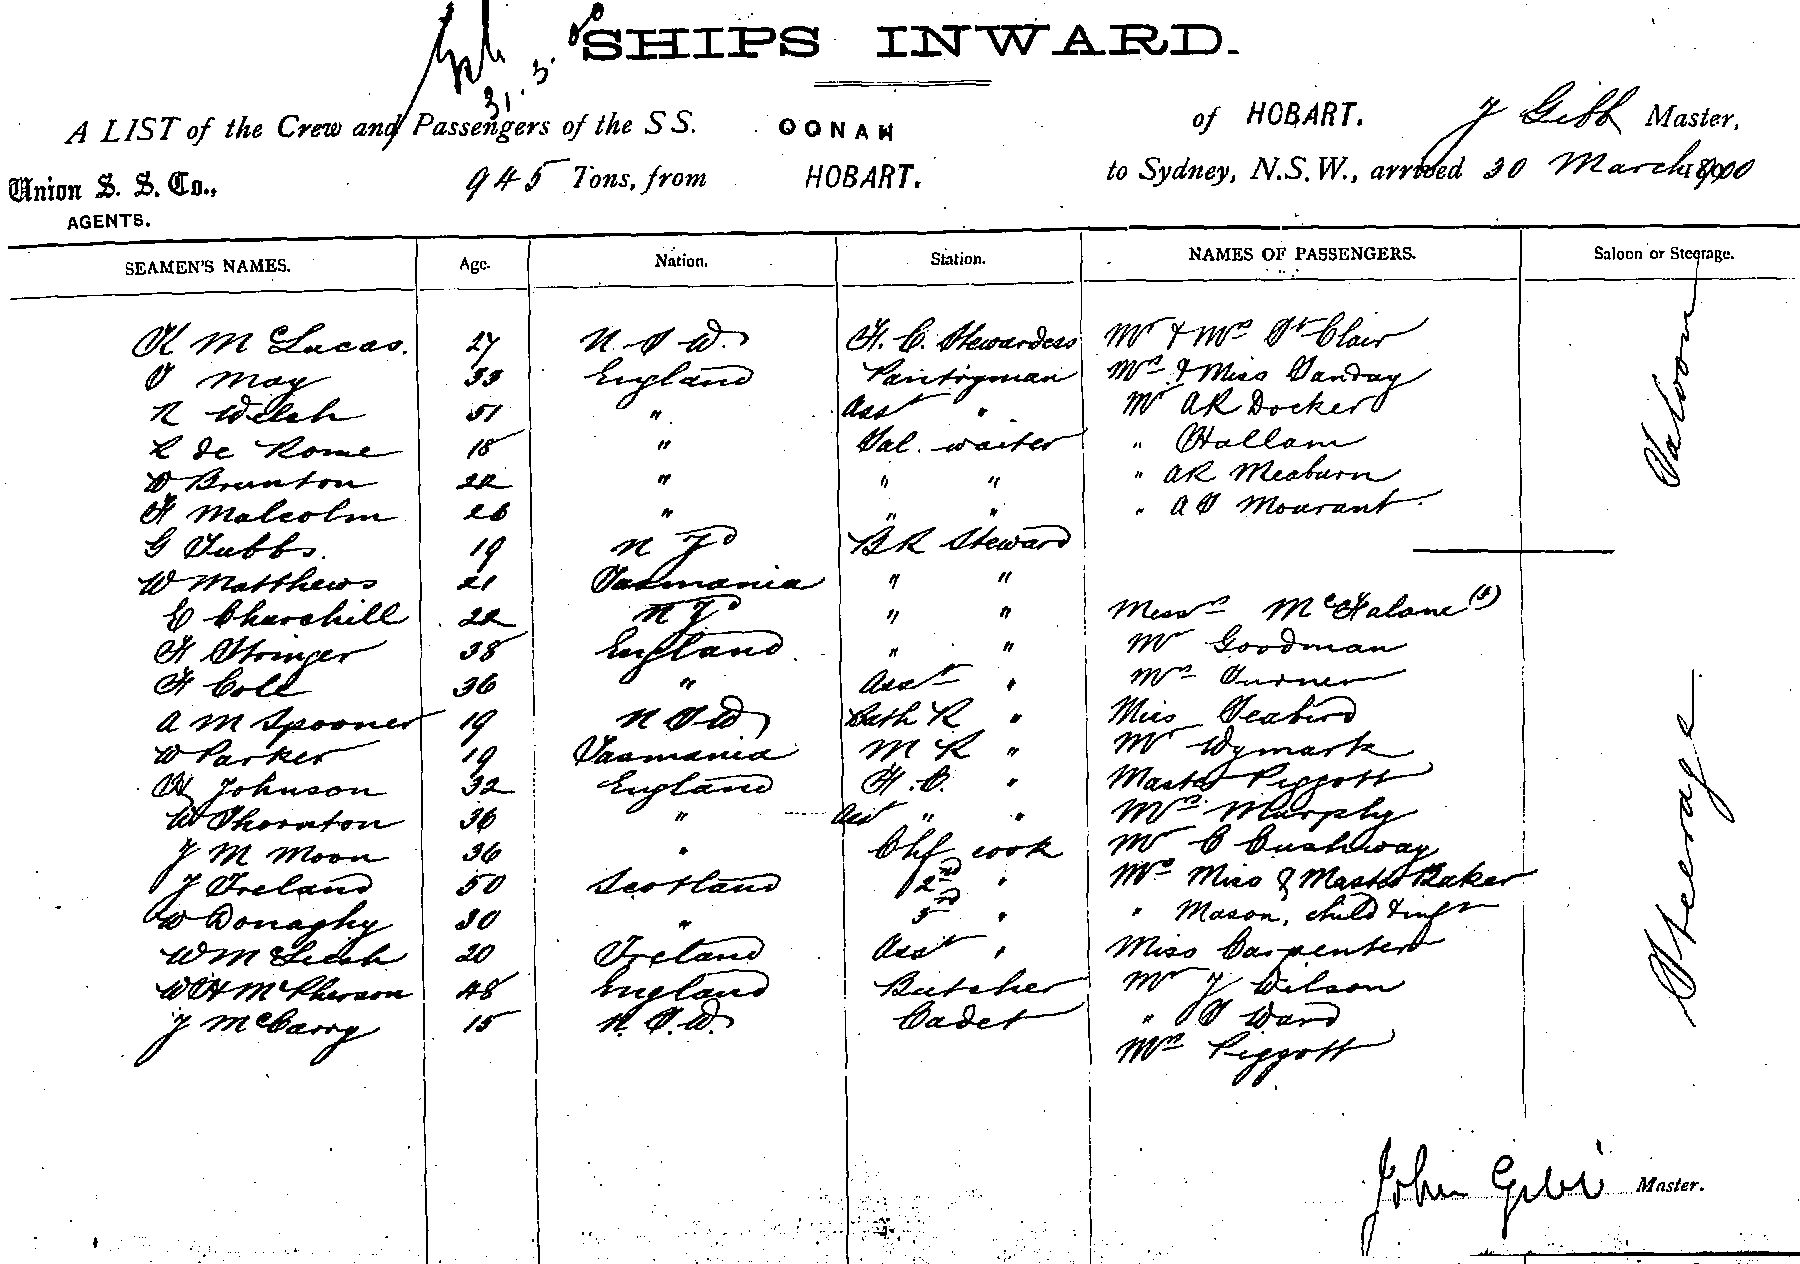 SHIPS INWARD.
31.3.
A LIST of the Crew and Passengers of the SS. OONAH of HOBART. J Gibb Master,
Union S. S. Co., 945 Tons, from HOBART. to Sydney, N.S.W., arrived 30 March 1900
AGENTS.
SEAMEN'S NAMES. Age. Nation. Station. NAMES OF PASSENGERS. Saloon or Steerage.
K McLucas. 27 N.S.W. F.C. Stewardess Mr & Mrs St Clair Saloon
S May 33 England Pantryman Mrs & Miss Tanday
R Welsh 51 " Asst " Mr AR Docker
R de Rome 18 " Sal. waiter " Hallam
W Brunton 22 " " " " AR Meaburn
F Malcolm 26 " " " " A S Mourant
G Tubbs. 19 N Zd BR Steward
W Matthews 21 Tasmania " "
E Churchill 22 N Zd " " Messrs McHalane (2)
F Stringer 38 England " " Mr Goodman
F Cole 36 " Asst " Mrs Turner
A M Spooner 19 N S W Bath R " Miss Seabird
W Parker 19 Tasmania M R " Mr Wymark Steerage
H Johnson 32 England F.C. " Master Piggott
W Thornton 36 " Asst " " Mrs Murphy
J M Moon 36 " Chf cook Mr C Cushway
J Ireland 50 Scotland 2nd " Mrs Miss & Master Baker
W Donaghy 30 " 3rd " " Mason, child & inft
W McLeish 20 Ireland Asst " Miss Carpenter
W H McPherson 48 England Butcher Mr J Wilson
J McCarry 15 N.S.W. Cadet " S Ward
Mrs Piggott
John Gibb Master.